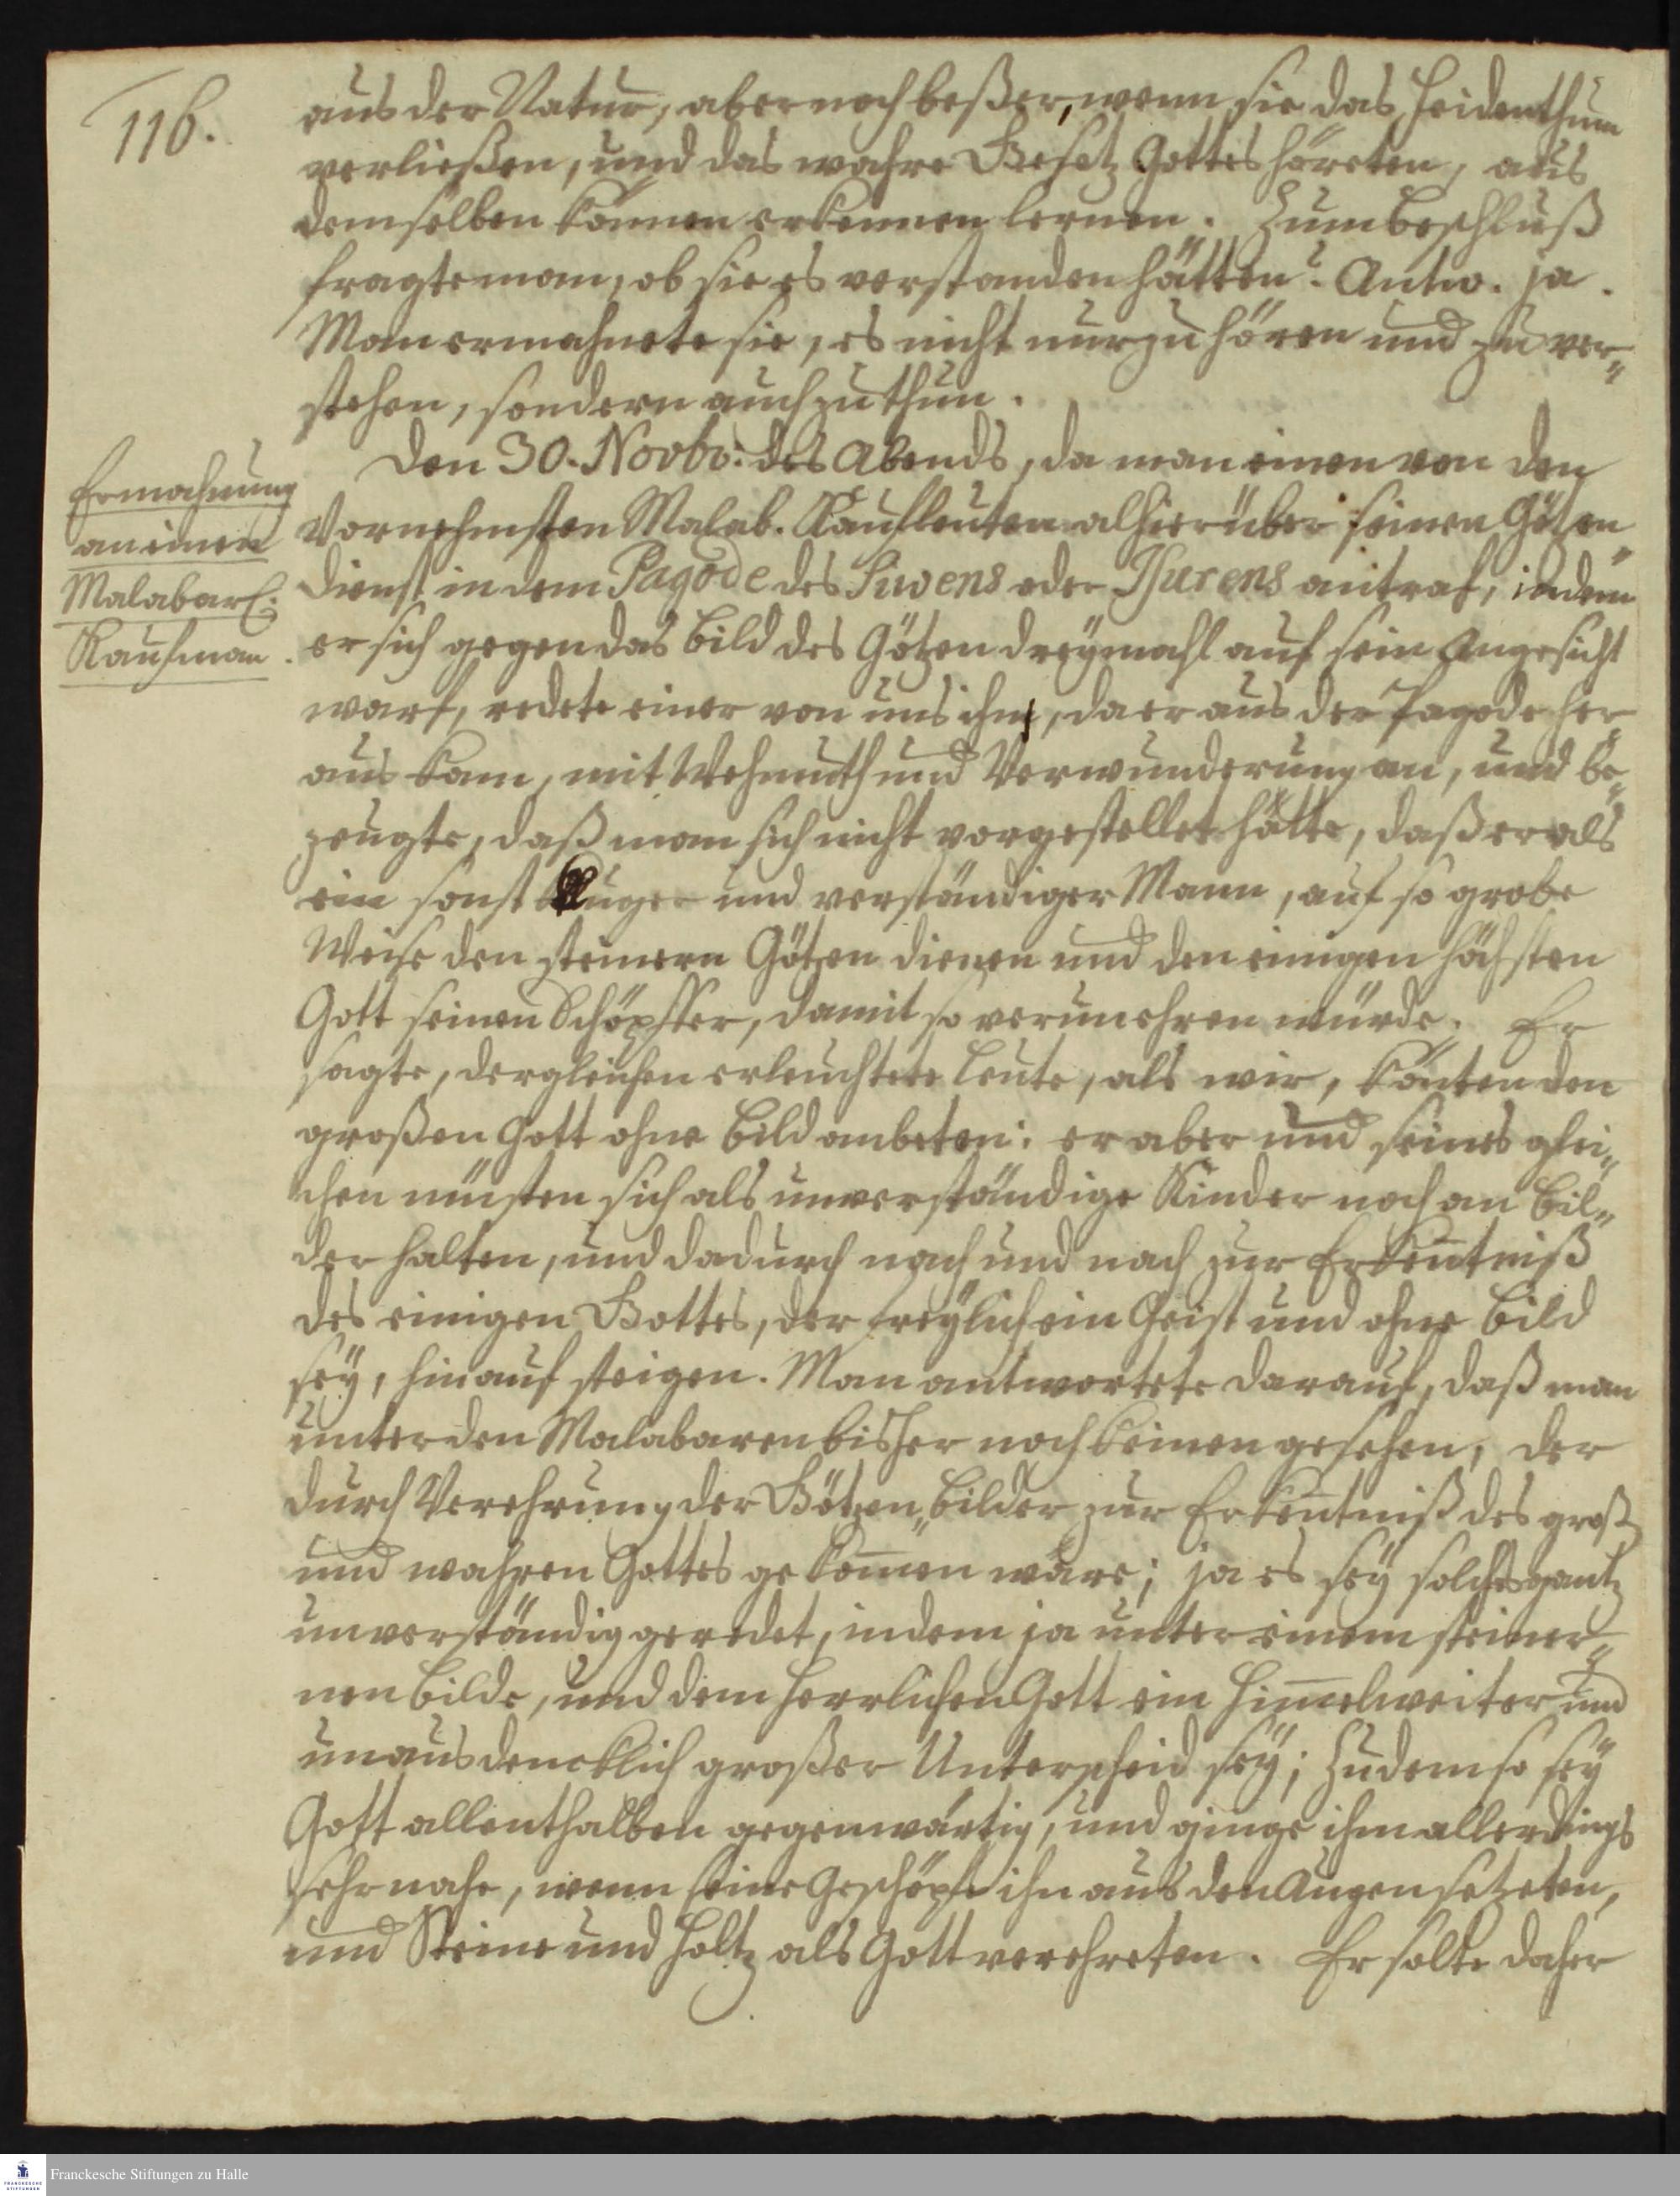 116.
aus der Natur, aber noch beßer, wenn sie das Heidenthum
verließen, und das wahre Gesetz Gottes höreten, aus
demselben können erkennen lernen. Zum beschluß
fragte man, ob sie es verstanden hätten? Antw. ja.
Man ermahnete sie, es nicht nur zu hören und zu ver„
stehen, sondern auch zu thun.
Ermahnung
an einen
Malabar.
Kaufman.
Den 30. Novbr: des Abends, da man einen von den
Vornehmsten Malab. Kaufleuten alhier über seinen Götzen„
dienst in dem Pagode des Siwens oder Isurens antraf, indem
er sich gegen das Bild des Götzen dreÿmahl auf sein Angesicht
warf, redete einer von uns ihn, da er aus der Pagode her„
aus kam, mit Wehmuth und Verwunderung an, und be„
zeugte, daß man sich nicht vorgestellet hätte, daß er als
ein sonst kluger und verständiger Mann, auf so grobe
Weise den steinern Götzen dienen und den einigen höchsten
Gott seinen Schöpffer, damit so verunehren würde. Er
sagte, dergleichen erleuchtete Leute, als wir, könten den
großen Gott ohne Bild anbeten: er aber und seines glei„
chen müsten sich als unverständige Kinder noch an Bil„
der halten, und dadurch nach und nach zur Erkentniß
des einigen Gottes, der freÿlich ein Geist und ohne Bild
seÿ, hinauf steigen. Man antwortete darauf, daß man
unter den Malabaren bisher noch keinen gesehen, der
durch Verehrung der Götzen„bilder zur Erkentniß des groß
und wahren Gottes gekom̄en wäre; ja es seÿ solches gantz
unverständig geredet, indem ja unter einem steiner„
nen Bilde, und dem herrlichen Gott ein him̄elweiter und
unausdencklich großer Unterscheid seÿ; Zudem so seÿ
Gott allenthalben gegenwärtig, und ginge ihm allerdings
sehr nahe, wenn seine Geschöpfe ihn aus den Augen setzeten,
und Steine und Holtz als Gott verehreten. Er solte daher
Franckesche Stiftungen zu Halle
FRANCKESCHE
STIFTUNGEN